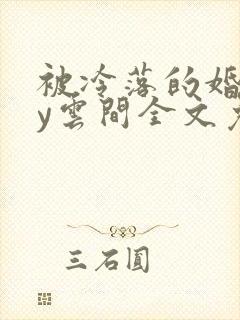 被冷落的婚
y雲間全文
三石圓